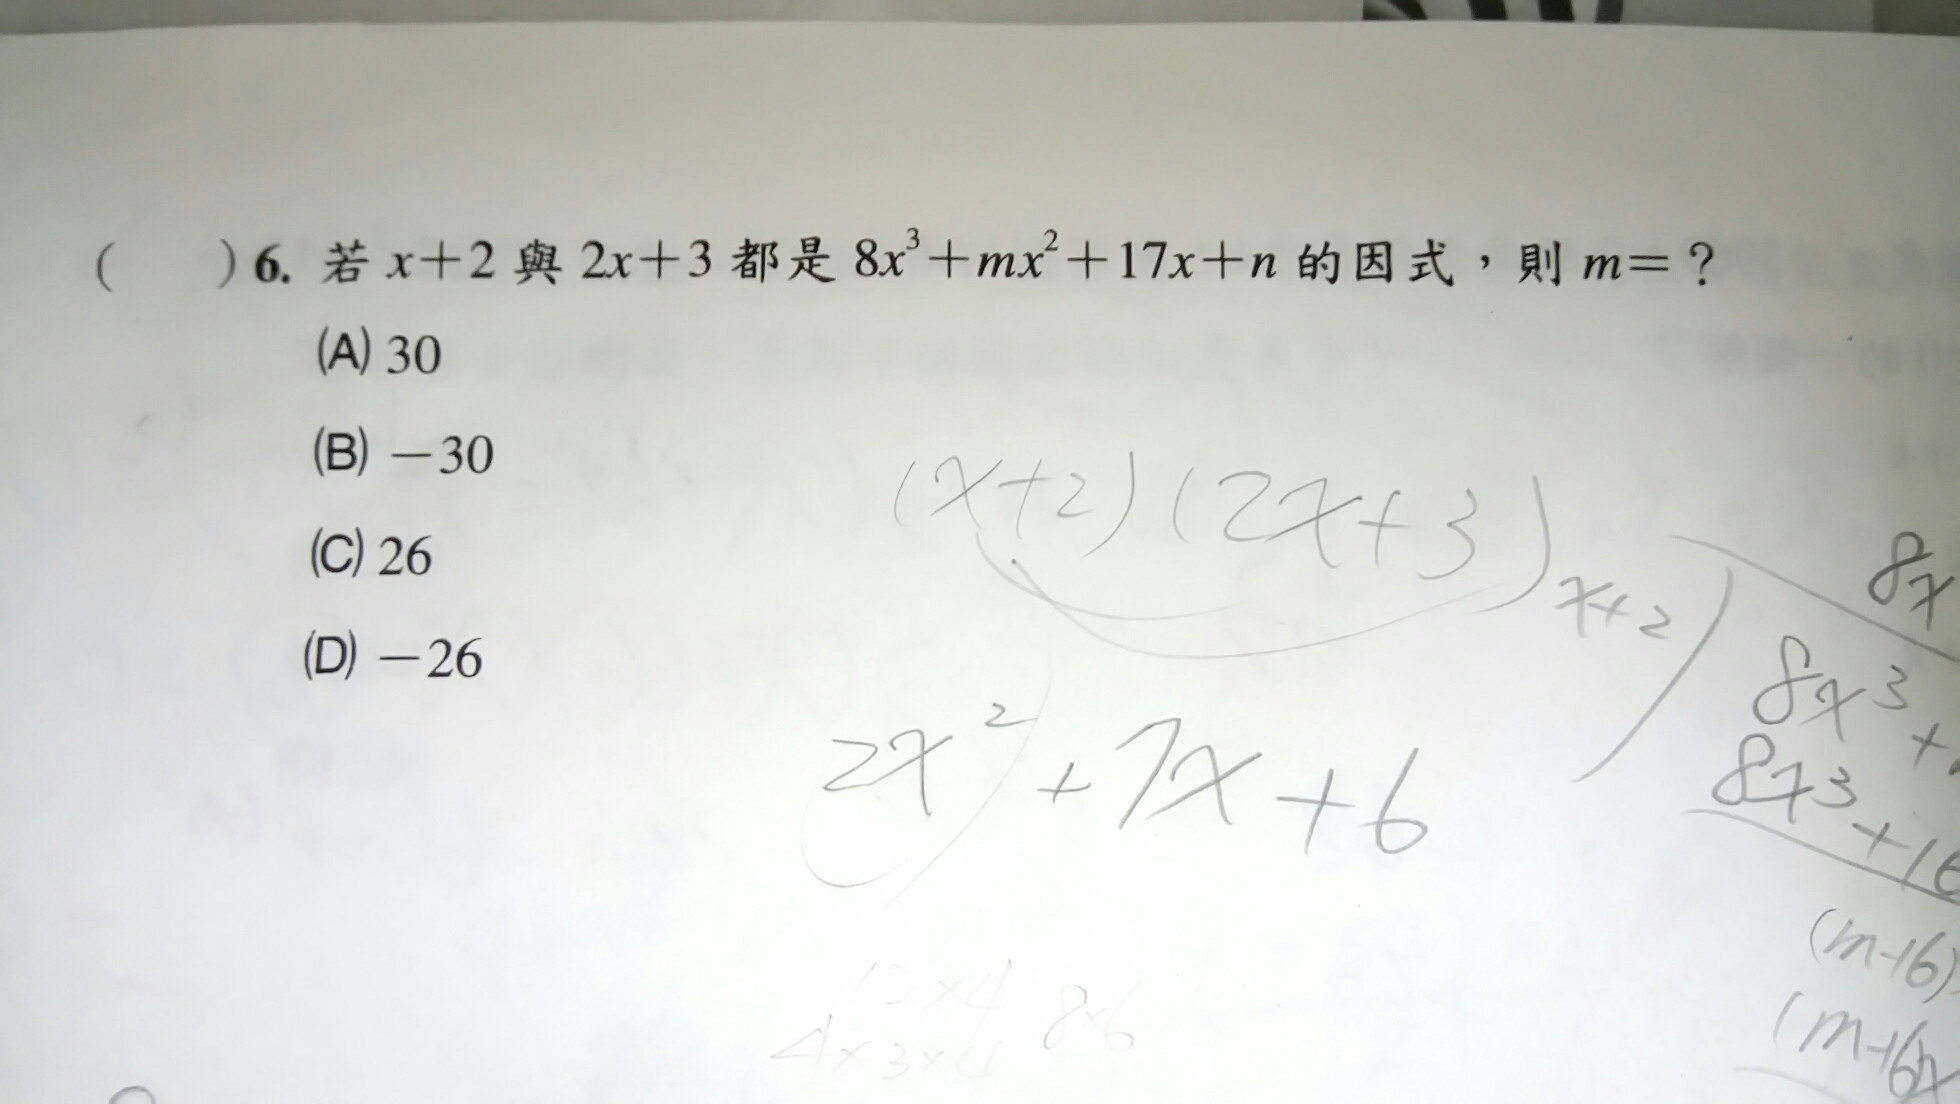 (　　)6. 若 x+2 與 2x+3 都是 8x³+mx²+17x+n 的因式，則 m=？
(A) 30
(B) −30
(C) 26
(D) −26
(x+2)(2x+3)
2x²+7x+6
8x
x+2
8x³+
8x³+16
(m-16)
(m-16)x
4x3x4